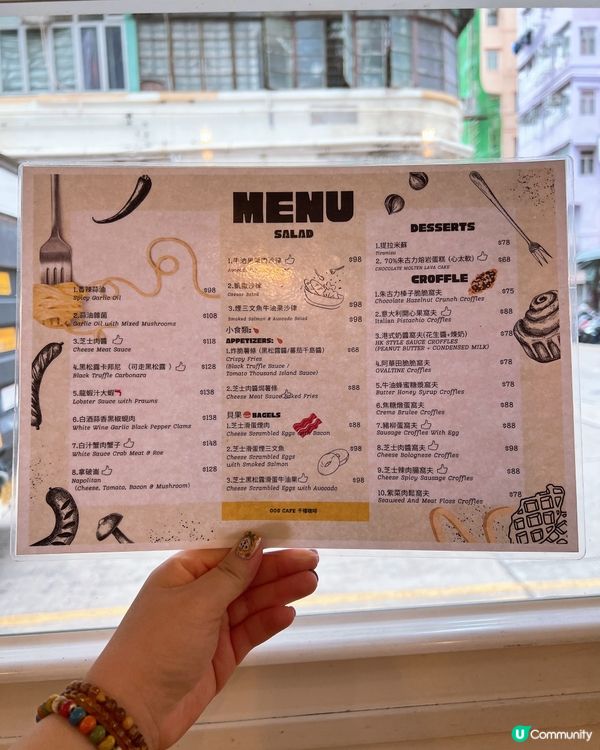 MENU
1.香辣蒜油 $98
Spicy Garlic Oil
2.蒜油雜菌 $108
Garlic Oil with Mixed Mushrooms
3.芝士肉醬 $118
Cheese Meat Sauce
4.黑松露卡邦尼 (可走黑松露) $128
Black Truffle Carbonara
5.龍蝦汁大蝦 $138
Lobster Sauce with Prawns
6.白酒蒜香黑椒蜆肉 $138
White Wine Garlic Black Pepper Clams
7.白汁蟹肉蟹子 $148
White Sauce Crab Meat & Roe
8.拿破崙 $128
Napolitan
(Cheese, Tomato, Bacon & Mushroom)
SALAD
$98
2.凱撒沙律 $98
Caesar Salad
3.煙三文魚牛油果沙律 $98
Smoked Salmon & Avocado Salad
小食類
APPETIZERS:
1.炸脆薯條 (黑松露醬/蕃茄千島醬) $68
Crispy Fries
(Black Truffle Sauce /
Tomato Thousand Island Sauce)
2.芝士肉醬焗薯條 $88
Cheese Meat Sauce Baked Fries
貝果 BAGELS
1.芝士滑蛋煙肉 $88
Cheese Scrambled Eggs with Bacon
2.芝士滑蛋煙三文魚 $98
Cheese Scrambled Eggs
with Smoked Salmon
3.芝士黑松露滑蛋牛油果 $98
Cheese Scrambled Eggs with Avocado
008 CAFE 千樓咖啡
DESSERTS
1.提拉米蘇 $78
Tiramisu
2. 70%朱古力熔岩蛋糕 (心太軟) $68
CHOCOLATE MOLTEN LAVA CAKE
CROFFLE
1.朱古力榛子脆脆窩夫 $75
Chocolate Hazelnut Crunch Croffles
2.意大利開心果窩夫 $88
Italian Pistachio Croffles
3.港式奶醬窩夫(花生醬+煉奶) $78
HK STYLE SAUCE CROFFLES
(PEANUT BUTTER + CONDENSED MILK)
4.阿華田脆脆窩夫 $78
OVALTINE Croffles
5.牛油蜂蜜糖漿窩夫 $78
Butter Honey Syrup Croffles
6.焦糖燉蛋窩夫 $88
Creme Brulee Croffles
7.豬柳蛋窩夫 $88
Sausage Croffles With Egg
8.芝士肉醬窩夫 $88
Cheese Bolognese Croffles
9.芝士辣肉腸窩夫 $88
Cheese Spicy Sausage Croffles
10.紫菜肉鬆窩夫 $78
Seaweed And Meat Floss Croffles
U Community